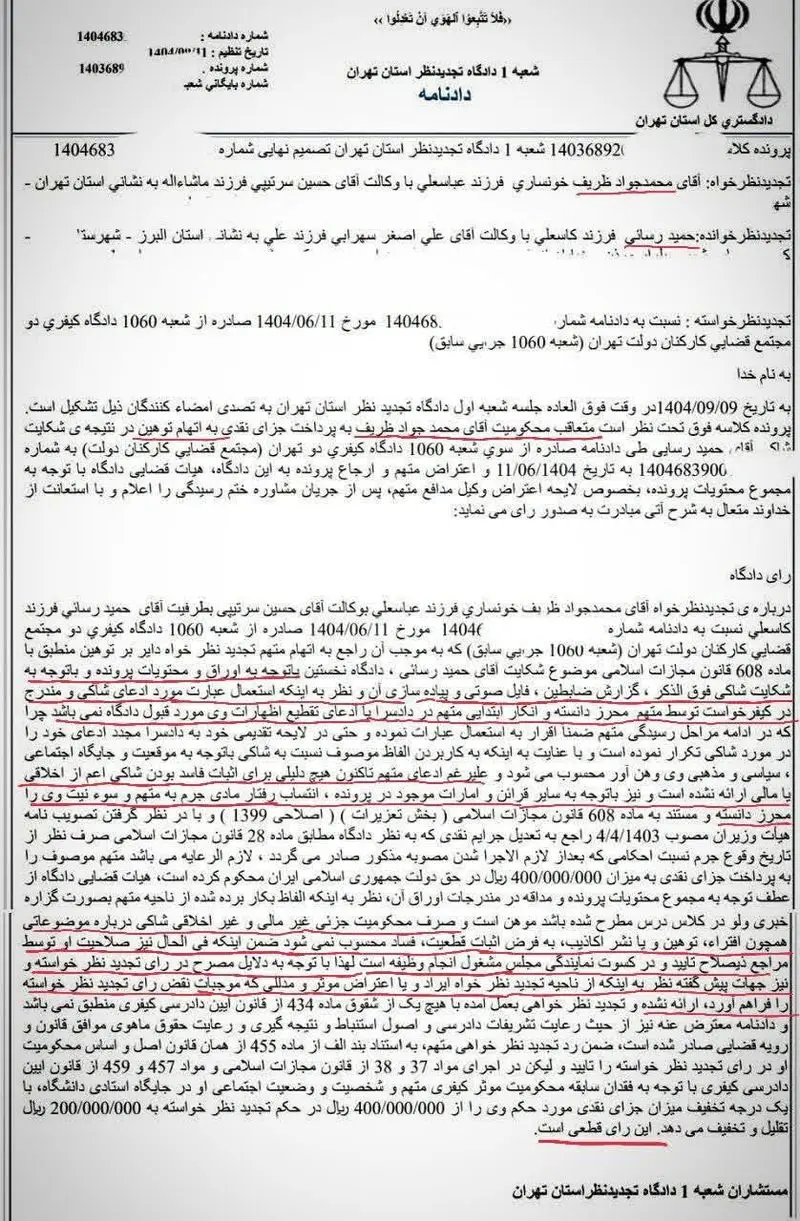 «فَلاَ تَتَّبِعُوا الْهَوَي أَنْ تَعْدِلُوا»
شماره دادنامه : 1404683
تاریخ تنظیم :
شماره پرونده . 1403689
شماره بایگانی شعبه
شعبه 1 دادگاه تجدیدنظر استان تهران
دادنامه
دادگستري کل استان تهران
پرونده کلاسه 14036892 شعبه 1 دادگاه تجدیدنظر استان تهران تصمیم نهایی شماره 1404683
تجدیدنظرخواه: آقای محمدجواد ظریف خونساري فرزند عباسعلي با وکالت آقای حسین سرتیپي فرزند ماشاءاله به نشاني استان تهران -
شه
تجدیدنظرخوانده:حمید رسائي فرزند کاسعلي با وکالت آقاي علي اصغر سهرابي فرزند علي به نشانـ استان البرز - شهرست -
تجدیدنظرخواسته : نسبت به دادنامه شمار 140468. مورخ 1404/06/11 صادره از شعبه 1060 دادگاه کیفري دو
مجتمع قضایي کارکنان دولت تهران (شعبه 1060 جزایي سابق)
به نام خدا
به تاریخ 1404/09/09در وقت فوق العاده جلسه شعبه اول دادگاه تجدید نظر استان تهران به تصدی امضاء کنندگان ذیل تشکیل است.
پرونده کلاسه فوق تحت نظر است متعاقب محکومیت آقای محمد جواد ظریف به پرداخت جزای نقدی به اتهام توهین در نتیجه ی شکایت
آقای حمید رسایی طی دادنامه صادره از سوي شعبه 1060 دادگاه کیفري دو تهران (مجتمع قضایي کارکنان دولت) به شماره
1404683900 به تاریخ 11/06/1404 و اعتراض متهم و ارجاع پرونده به این دادگاه، هیات قضایی دادگاه با توجه به
مجموع محتویات پرونده، بخصوص لایحه اعتراض وکیل مدافع متهم، پس از جریان مشاوره ختم رسیدگی را اعلام و با استعانت از
خداوند متعال به شرح آتی مبادرت به صدور رای می نماید:
رای دادگاه
درباره ی تجدیدنظرخواه آقای محمدجواد ظریف خونساري فرزند عباسعلي بوکالت آقای حسین سرتیپی بطرفیت آقای حمید رسائي فرزند
کاسعلي نسبت به دادنامه شماره 1404 مورخ 1404/06/11 صادره از شعبه 1060 دادگاه کیفري دو مجتمع
قضایي کارکنان دولت تهران (شعبه 1060 جزایي سابق) که به موجب آن راجع به اتهام متهم تجدید نظر خواه دایر بر توهین منطبق با
ماده 608 قانون مجازات اسلامی موضوع شکایت آقای حمید رسائی ، دادگاه نخستین باتوجه به اوراق و محتویات پرونده و باتوجه به
شکایت شاکی فوق الذکر ، گزارش ضابطین ، فایل صوتی و پیاده سازی آن و نظر به اینکه استعمال عبارت مورد ادعای شاکی و مندرج
در کیفرخواست توسط متهم محرز دانسته و انکار ابتدایی متهم در دادسرا یا ادعای تقطیع اظهارات وی مورد قبول دادگاه نمی باشد چرا
که در ادامه مراحل رسیدگی متهم ضمناً اقرار به استعمال عبارات نموده و حتی در لایحه تقدیمی خود به دادسرا مجدد ادعای خود را
در مورد شاکی تکرار نموده است و با عنایت به اینکه به کاربردن الفاظ موصوف نسبت به شاکی باتوجه به موقعیت و جایگاه اجتماعی
، سیاسی و مذهبی وی وهن آور محسوب می شود و علیرغم ادعای متهم تاکنون هیچ دلیلی برای اثبات فاسد بودن شاکی اعم از اخلاقی
یا مالی ارائه نشده است و نیز باتوجه به سایر قرائن و امارات موجود در پرونده ، انتساب رفتار مادی جرم به متهم و سوء نیت وی را
محرز دانسته و مستند به ماده 608 قانون مجازات اسلامی ( بخش تعزیرات ) ( اصلاحی 1399 ) و با در نظر گرفتن تصویب نامه
هیأت وزیران مصوب 4/4/1403 راجع به تعدیل جرایم نقدی که به نظر دادگاه مطابق ماده 28 قانون مجازات اسلامی صرف نظر از
تاریخ وقوع جرم نسبت احکامی که بعداز لازم الاجرا شدن مصوبه مذکور صادر می گردد ، لازم الرعایه می باشد متهم موصوف را
به پرداخت جزای نقدی به میزان 400/000/000 ریال در حق دولت جمهوری اسلامی ایران محکوم کرده است، هیات قضایی دادگاه از
عطف توجه به مجموع محتویات پرونده و مداقه در مندرجات اوراق آن، نظر به اینکه الفاظ بکار برده شده از ناحیه متهم بصورت گزاره
خبری ولو در کلاس درس مطرح شده باشد موهن است و صرف محکومیت جزئی غیر مالی و غیر اخلاقی شاکی درباره موضوعاتی
همچون افتراء، توهین و یا نشر اکاذیب، به فرض اثبات قطعیت، فساد محسوب نمی شود ضمن اینکه فی الحال نیز صلاحیت او توسط
مراجع ذیصلاح تایید و در کسوت نمایندگی مجلس مشغول انجام وظیفه است لهذا با توجه به دلایل مصرح در رای تجدید نظر خواسته و
نیز جهات پیش گفته نظر به اینکه از ناحیه تجدید نظر خواه ایراد و یا اعتراض موثر و مدللی که موجبات نقض رای تجدید نظر خواسته
را فراهم آورد، ارائه نشده و تجدید نظر خواهی بعمل آمده با هیچ یک از شقوق ماده 434 از قانون آیین دادرسی کیفری منطبق نمی باشد
و دادنامه معترض عنه نیز از حیث رعایت تشریفات دادرسی و اصول استنباط و نتیجه گیری و رعایت حقوق ماهوی موافق قانون و
رویه قضایی صادر شده است، ضمن رد تجدید نظر خواهی متهم، به استناد بند الف از ماده 455 از همان قانون اصل و اساس محکومیت
او در رای تجدید نظر خواسته را تایید و لیکن در اجرای مواد 37 و 38 از قانون مجازات اسلامی و مواد 457 و 459 از قانون ایین
دادرسی کیفری با توجه به فقدان سابقه محکومیت موثر کیفری متهم و شخصیت و وضعیت اجتماعی او در جایگاه استادی دانشگاه، با
یک درجه تخفیف میزان جزای نقدی مورد حکم وی را از 400/000/000 ریال در حکم تجدید نظر خواسته به 200/000/000 ریال
تقلیل و تخفیف می دهد. این رای قطعی است.
مستشاران شعبه 1 دادگاه تجدیدنظر استان تهران